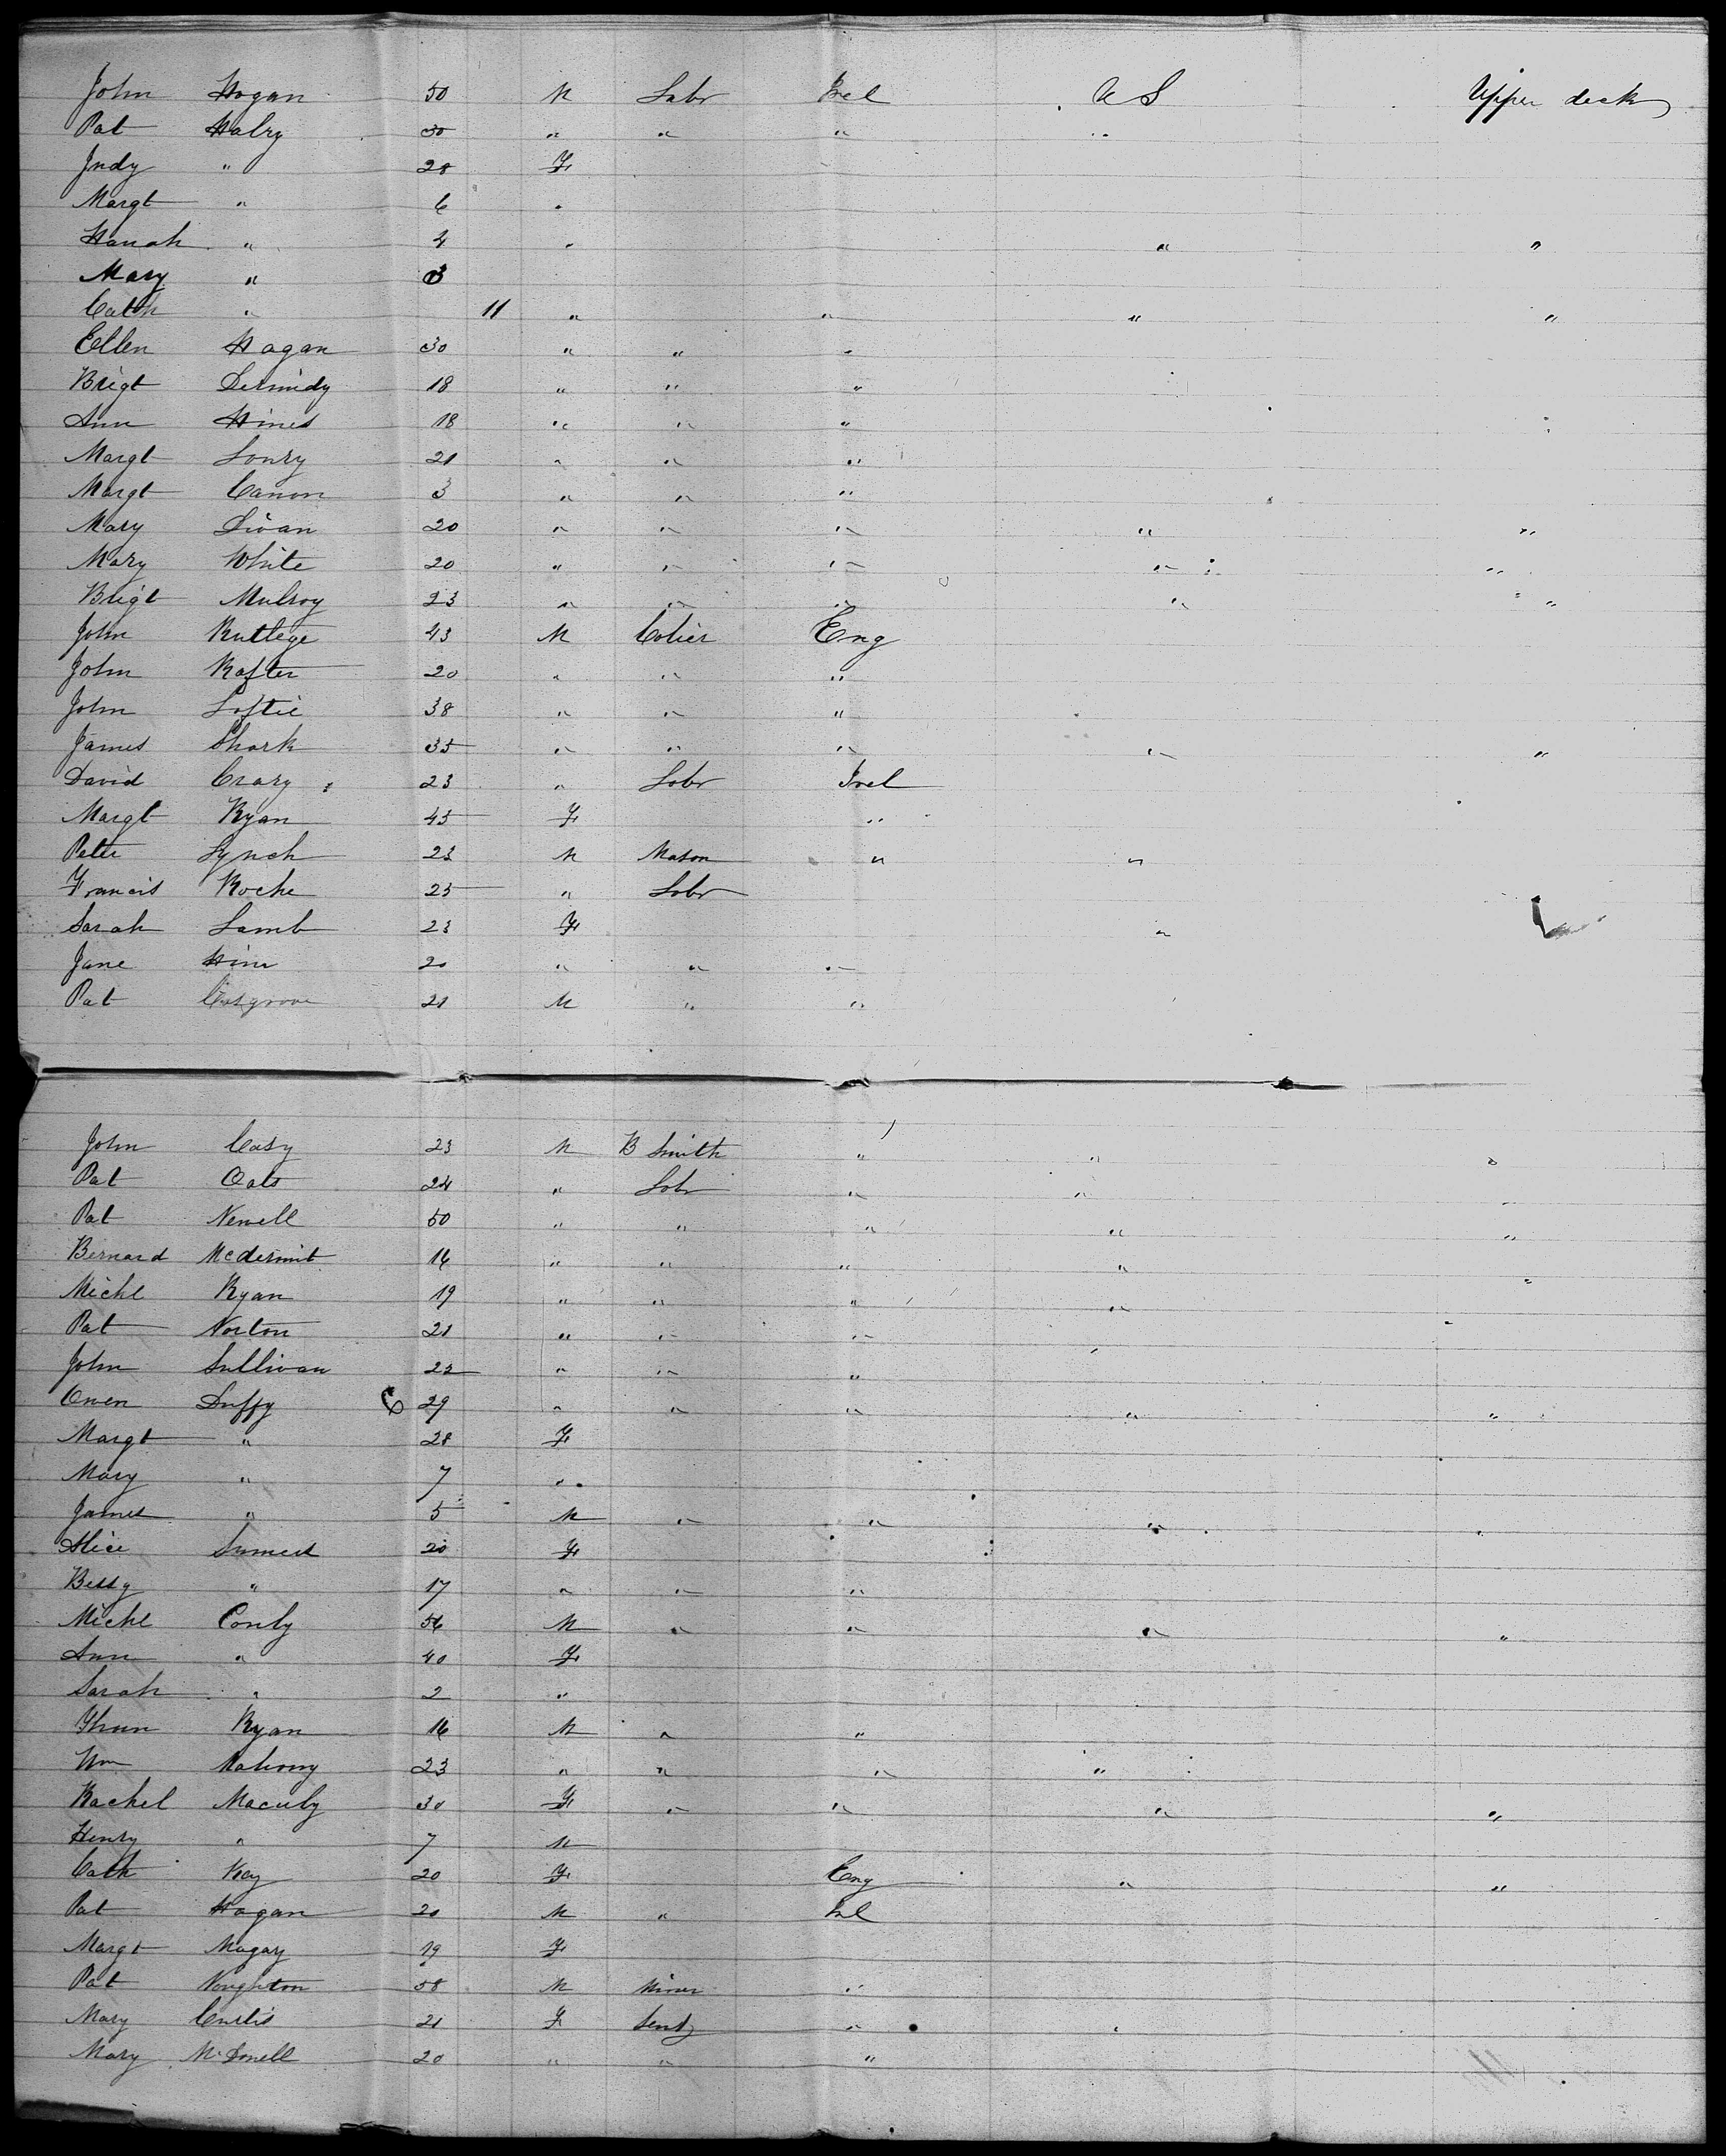 John Hogan 50 M Labr Irel U S Upper deck
Pat Halry 30 " " " "
Judy " 28 F
Margt " 6 "
Hanah " 4 " " "
Mary " 3
Cath " 11 " " " "
Ellen Hagan 30 " " "
Brigt Dermidy 18 " " "
Ann Hines 18 " " "
Margt Lowry 21 " " "
Margt Canon 3 " " "
Mary Divan 20 " " " " "
Mary White 20 " " " " "
Brigt Mulroy 23 " " " " "
John Rutlege 43 M Colier Eng
John Rafter 20 " " "
John Loftie 38 " " "
James Shark 35 " " " " "
David Crary 23 " Labr Irel
Margt Ryan 45 F "
Peter Lynch 23 M Mason " "
Francis Roche 25 " Labr
Sarah Lamb 23 F "
Jane 20 " " "
Pat Cosgrove 21 M " "
John Casy 23 M B Smith " " "
Pat Oats 24 " Labr " " "
Pat Newell 50 " " " " "
Bernard McDermit 16 " " " " "
Michl Ryan 19 " " " "
Pat Norton 21 " " "
John Sullivan 22 " " "
Owen Duffy 29 " " " " "
Margt " 28 F
Mary " 7 "
James " 5 M " " " "
Alice 20 F
Bessy " 17 " " "
Michl Conly 56 M " " " "
Ann " 40 F
Sarah " 2 "
Ryan 16 M " "
Wm Mahony 23 " " " "
Rachel Maculy 30 F " " " "
Henry " 7 M
Cath Kay 20 F Eng " "
Pat Hagan 20 M " Irel
Margt Magay 19 F
Pat Noughton 58 M Miner "
Mary Curtis 21 F Servt "
Mary McDonell 20 " " "